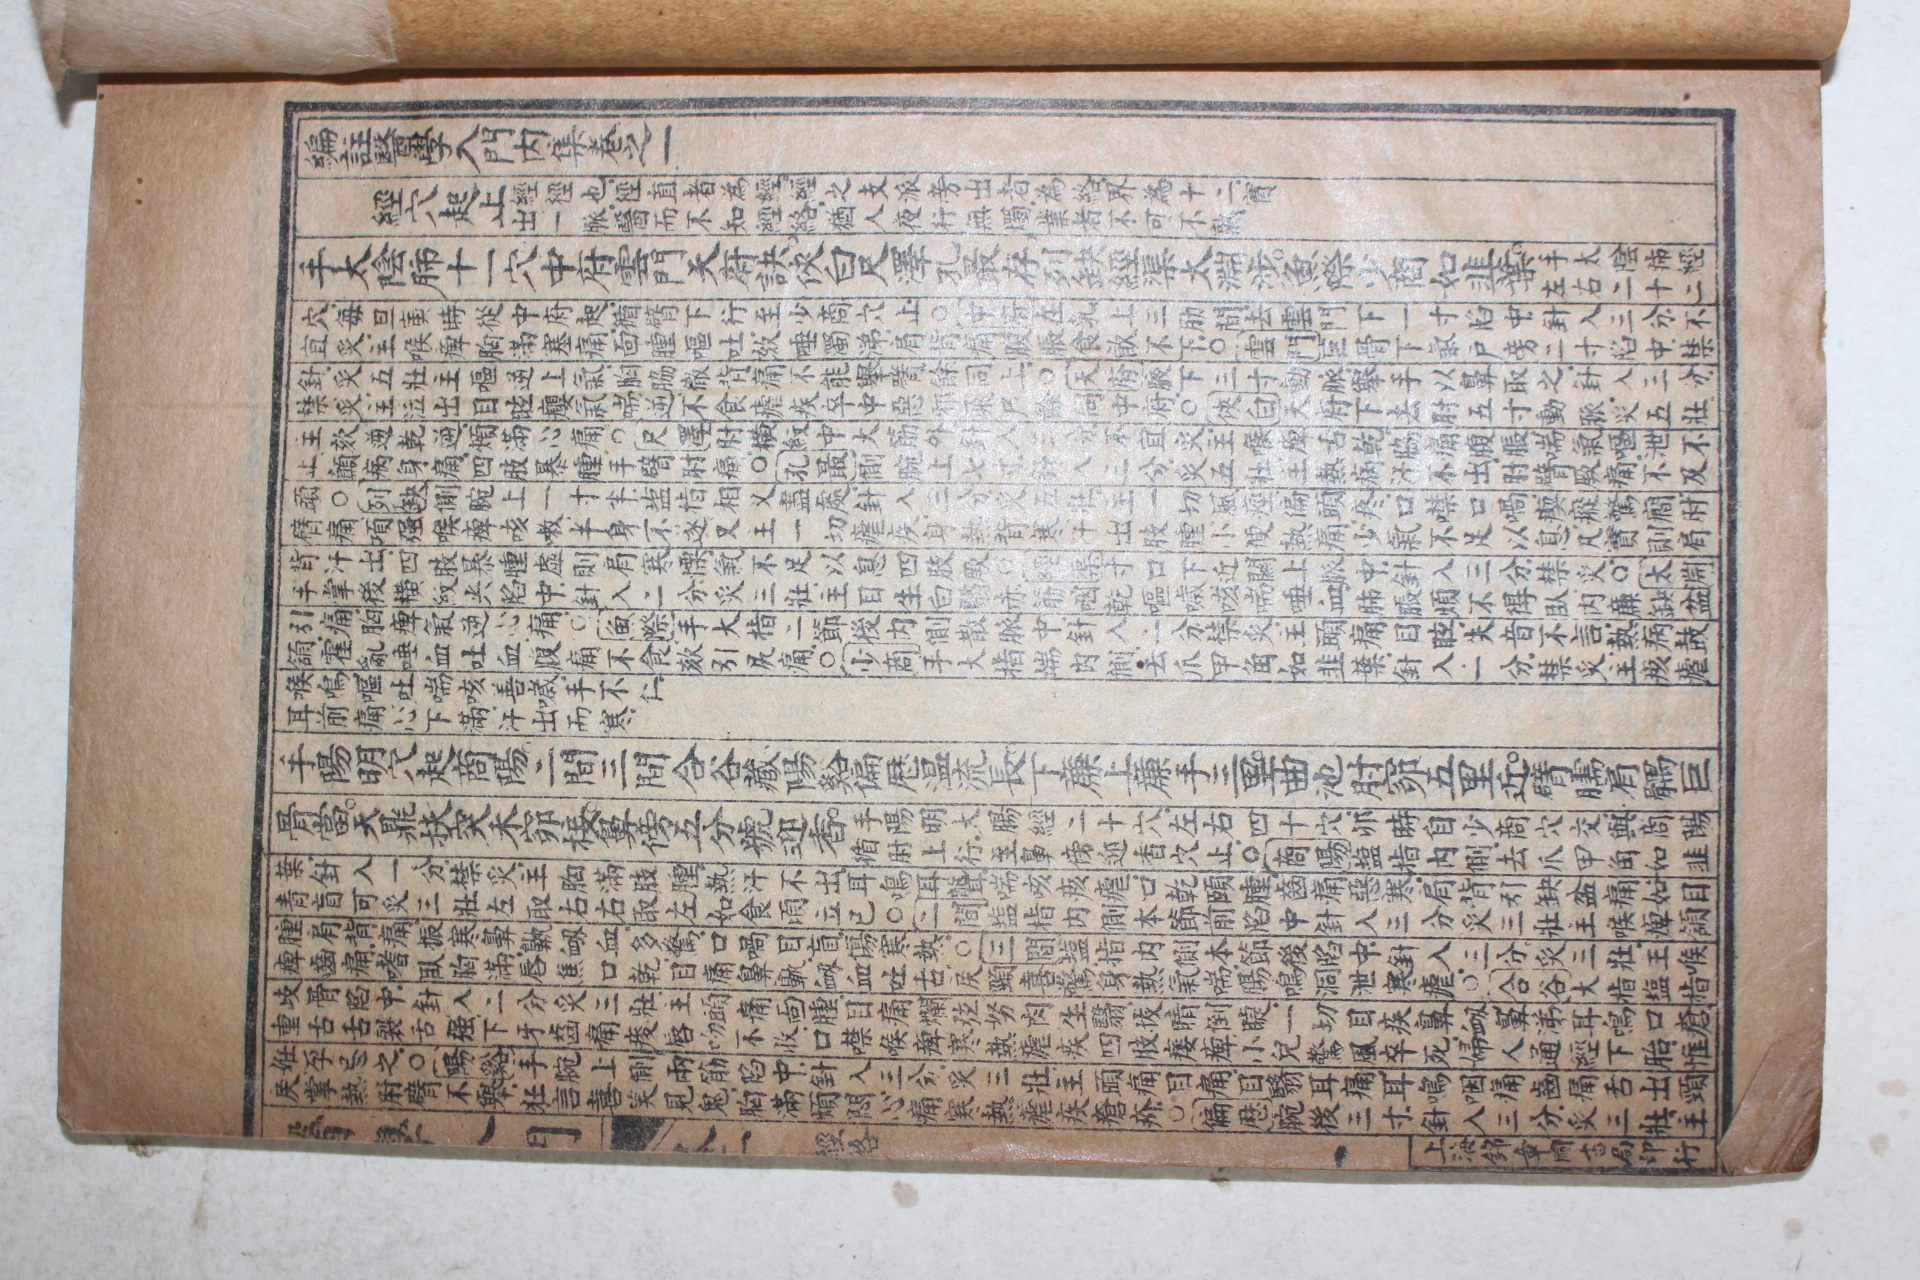 編註醫學入門內集卷之一
經穴起止
經經也徑直者為經經之支派旁出者為絡界為十二實
出一脈醫而不知經絡猶人夜行無燭業者不可不熟
手太陰肺十一穴中府雲門天府訣俠白尺澤孔最存列缺經渠太淵涉魚際少商如韭葉
手太陰肺經
左右二十二
穴每旦寅時從中府起循臂下行至少商穴止○中府在乳上三肋間去雲門下一寸陷中針入三分不
宜灸主喉痺胸滿塞痛面腫嘔吐欬唾濁涕肩背痛腹脹食飲不下○雲門巨骨下氣戶旁二寸陷中禁
針灸五壯主嘔逆上氣胸脇徹背痛不能舉臂餘同上○天府腋下三寸動脈舉手以鼻取之針入三分
禁灸主泣出目眩癭氣喘逆不食瘧疾卒中惡邪飛尸餘同中府○俠白天府下去肘五寸動脈灸五壯
主欬逆乾逆煩滿心痛○尺澤肘橫紋中大筋外針入三分不宜灸主喉痺舌乾脇痛腹脹喘氣嘔泄不
止顛病身痛四肢暴腫手臂肘痛○孔最側腕上七寸針入二分灸五壯主熱病汗不出肘臂厥痛不及
頭○列缺側腕上一寸半塩指相义盡處針入三分灸五壯主一切風痙偏頭疼口噤口喎瘈瘲驚癇肘
臂痛項强喉痺咳嗽半身不遂又主一切瘧疾身熱背寒汗出肢腫小便熱痛少氣不足以息凡實則肩
背汗出四肢暴腫虛則肩寒慄氣不足以息四肢厥○經渠寸口下近關上脈中針入三分禁灸○太淵
手掌後橫紋尖陷中針入二分灸三壯主目生白翳赤筋咽乾嘔噦咳喘唾血肺脹煩不得臥內廉缺盆
引痛胸痺氣逆心痛○魚際手大指二節後內側散脈中針入二分禁灸主頭痛目眩失音不言熱病鼓
頷霍亂唾血吐血腹痛不食欬引尻痛○少商手大指端內側去爪甲角如韭葉針入一分禁灸主痎瘧
喉鳴嘔吐喘咳善噦手不仁
耳前痛心下滿汗出而寒
手陽明穴起商陽二間三間合谷藏陽谿偏歷温流長下廉上廉手三里曲池肘窌五里近臂臑肩髃巨
骨當天鼎扶突禾窌接鼻傍五分號迎香
手陽明大腸經二十穴左右四十穴卯時自少商穴交與商陽
循肘上行至鼻傍迎香穴止○商陽塩指內側去爪甲角如韭
葉針入一分禁灸主胸滿肢腫熱汗不出耳鳴耳聾喘咳痎瘧口乾頤腫齒痛惡寒肩背引缺盆痛如目
青盲可灸三壯左取右右取左如食頃立已○二間塩指內側本節前陷中針入三分灸三壯主喉痺頷
腫肩背痛振寒鼻鼽衂血多驚口喎目盲傷寒熱○三間塩指內側本節後陷中針入三分灸三壯主喉
痺齒痛嗜臥胸滿唇焦口乾目痛鼻鼽衂血吐舌戾頸喜驚身熱氣喘腸鳴洞泄寒瘧○合谷大指塩指
岐骨陷中針入二分灸三壯主頭痛面腫目痛爛弦努肉生翳扳睛倒睫一切目疾鼻衂鼻涕耳鳴口瘡
重舌舌裂舌强下牙齒痛痠唇吻不收口噤喉痺寒熱瘧疾四肢痿痺小兒驚風卒死婦人通經下胎惟
姙孕忌之○陽谿手腕上側兩筋陷中針入三分灸三壯主頭痛目痛目翳耳痛耳鳴咽痛齒痛舌出頸
戾掌熱肘臂不舉狂言喜笑見鬼胸滿煩悶心痛寒熱瘧疾瘡疥○偏歷腕後三寸針入三分灸三壯主
醫學入門
卷一
經絡
上海錦章圖書局印行